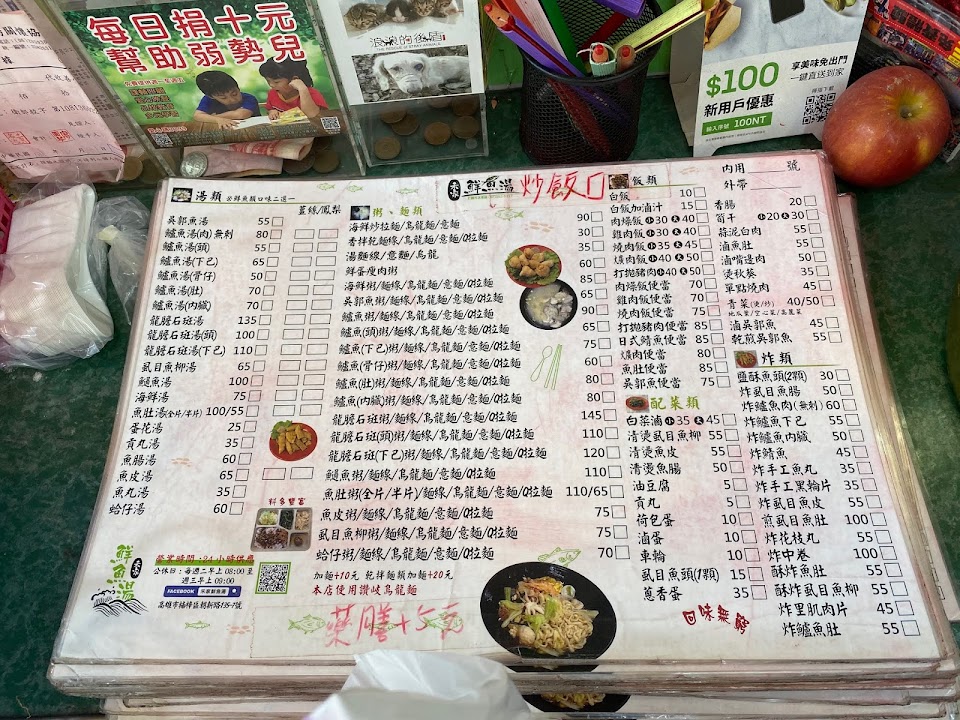 每日捐十元
幫助弱勢兒
浪浪的後盾
$100
享美味免出門
一鍵直送到家
新用戶優惠
輸入序號 100NT
鮮魚湯 炒飯口
內用 號
外帶
湯類 ※鮮魚類口味二選一
薑絲/鳳梨
吳郭魚湯 55
鱸魚湯(肉)無刺 80
鱸魚湯(頭) 55
鱸魚湯(下巴) 65
鱸魚湯(骨仔) 50
鱸魚湯(肚) 70
鱸魚湯(內臟) 70
龍膽石斑湯 135
龍膽石斑湯(頭) 100
龍膽石斑湯(下巴) 110
虱目魚柳湯 65
鮸魚湯 100
海鮮湯 75
魚肚湯(全片/半片) 100/55
蛋花湯 25
貢丸湯 35
魚腸湯 60
魚皮湯 65
魚丸湯 35
蛤仔湯 60
粥、麵類
海鮮炒拉麵/烏龍麵/意麵 90
香拌乾麵線/烏龍麵/意麵/Q拉麵 30
湯麵線/意麵/烏龍 35
鮮蛋瘦肉粥 60
海鮮粥/麵線/烏龍麵/意麵/Q拉麵 85
吳郭魚粥/麵線/烏龍麵/意麵/Q拉麵 65
鱸魚粥/麵線/烏龍麵/意麵/Q拉麵 90
鱸魚(頭)粥/麵線/烏龍麵/意麵/Q拉麵 65
鱸魚(下巴)粥/麵線/烏龍麵/意麵/Q拉麵 75
鱸魚(骨仔)粥/麵線/烏龍麵/意麵/Q拉麵 60
鱸魚(肚)粥/麵線/烏龍麵/意麵/Q拉麵 80
鱸魚(內臟)粥/麵線/烏龍麵/意麵/Q拉麵 80
龍膽石斑粥/麵線/烏龍麵/意麵/Q拉麵 145
龍膽石斑(頭)粥/麵線/烏龍麵/意麵/Q拉麵 110
龍膽石斑(下巴)粥/麵線/烏龍麵/意麵/Q拉麵 120
鮸魚粥/麵線/烏龍麵/意麵/Q拉麵 110
魚肚粥(全片/半片)/麵線/烏龍麵/意麵/Q拉麵 110/65
魚皮粥/麵線/烏龍麵/意麵/Q拉麵 75
虱目魚柳粥/麵線/烏龍麵/意麵/Q拉麵 75
蛤仔粥/麵線/烏龍麵/意麵/Q拉麵 70
加麵+10元 乾拌麵類加麵+20元
本店使用讚岐烏龍麵
藥膳+5元
飯類
白飯 10
白飯加滷汁 15
肉燥飯 小30 大40
雞肉飯 小30 大40
燒肉飯 小35 大45
爌肉飯 小40 大50
打拋豬肉 小40 大50
肉燥飯便當 75
雞肉飯便當 75
燒肉飯便當 75
打拋豬肉便當 85
日式鯖魚便當 85
爌肉便當 85
魚肚便當 85
吳郭魚便當 75
配菜類
白菜滷 小35 大45
清燙虱目魚柳 55
清燙魚皮 55
清燙魚腸 50
油豆腐 5
貢丸 5
荷包蛋 10
滷蛋 10
車輪 10
虱目魚頭(1顆) 15
蔥香蛋 35
香腸 20
筍干 小20 大30
蒜泥白肉 55
滷魚肚 55
滷嘴邊肉 50
燙秋葵 35
單點燒肉 45
青菜(燙/炒) 40/50
地瓜葉/空心菜/高麗菜
滷吳郭魚 45
乾煎吳郭魚 55
炸類
鹽酥魚頭(2顆) 30
炸虱目魚腸 50
炸鱸魚肉(無刺) 60
炸鱸魚下巴 55
炸鱸魚內臟 50
炸鯖魚 45
炸手工魚丸 35
炸手工黑輪片 35
炸虱目魚皮 55
煎虱目魚肚 100
炸花枝丸 55
炸中卷 100
酥炸魚肚 55
酥炸虱目魚柳 55
炸里肌肉片 45
炸鱸魚肚 55
回味無窮
料多豐富
鮮魚湯
營業時間：24小時供應
公休日：每週二早上08:00至
週三早上09:00
FACEBOOK 禾家鮮魚湯
高雄市楠梓區朝新路135-7號